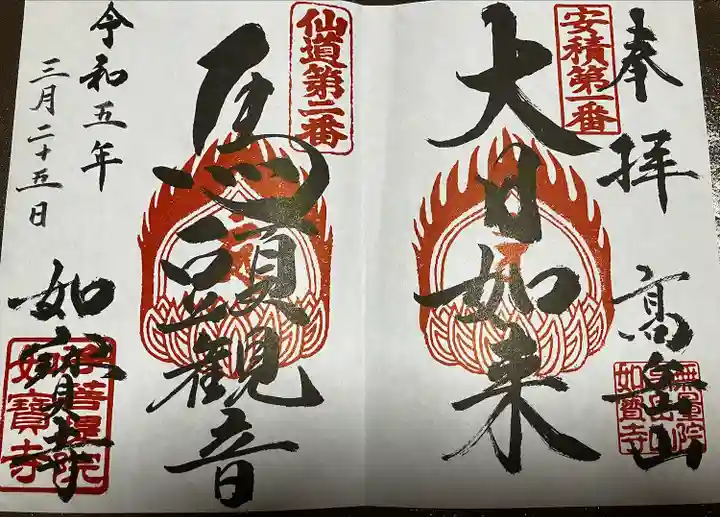 奉拝
高岳山
安積第一番
大日如来
仙道第二番
馬頭観音
令和五年
三月二十五日
如寳寺
如寶寺
如寶寺